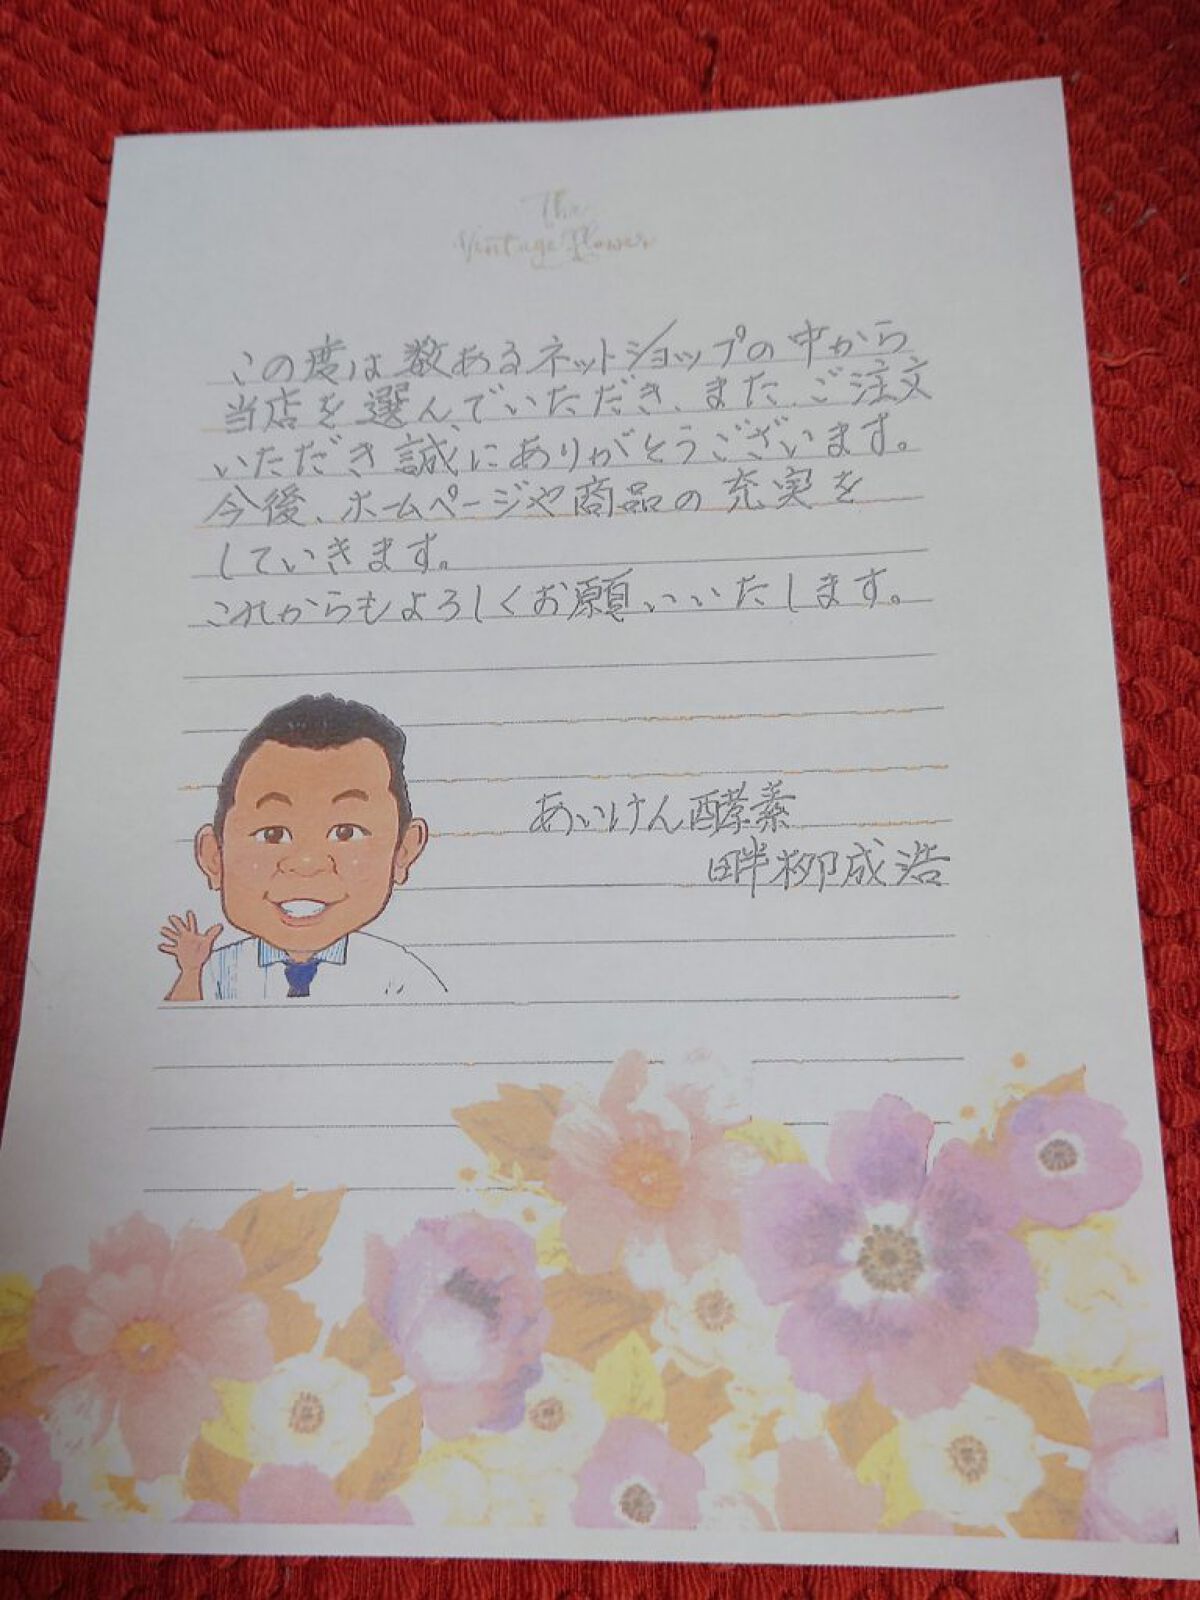 The
Vintage Flower
この度は数あるネットショップの中から
当店を選んでいただき、また、ご注文
いただき誠にありがとうございます。
今後、ホームページや商品の充実を
していきます。
これからもよろしくお願いいたします。
あいけん酵素
畔柳成浩